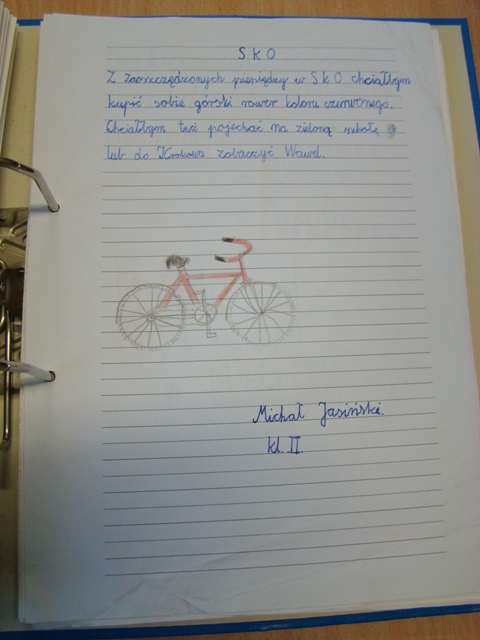 SKO
Z zaoszczędzonych pieniędzy w SKO chciałbym
kupić sobie górski rower koloru czerwonego.
Chciałbym też pojechać na zieloną szkołę
lub do Krakowa zobaczyć Wawel.
Michał Jasiński.
kl. II.